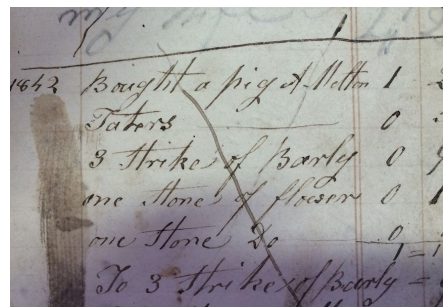 1842 Bought a pig at Melton 1
Taters 0
3 Strike of Barly 0 9
one Stone of flower 0 1
one Stone Do 0
1 = 1
To 3 Strike of Barly =